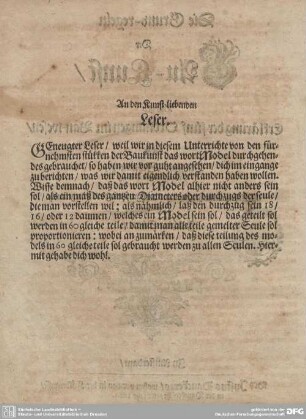 An den Kunst-liebenden
Leser.
GEneugter Leser / weil wir in diesem Unterrichte von den für-
nehmsten stükken der Baukunst das wort Model durchgehen-
des gebrauchet / so haben wir vor guht angesehen / dich im eingange
zu berichten / was wir damit eigendlich verstanden haben wollen.
Wisse demnach / daß das wort Model alhier nicht anders sein
sol / als ein mäß des gantzen Diameters oder durchzugs der seule /
die man vorstellen wil; als nähmlich / laß den durchzug sein 18 /
16 / oder 12 daumen / welches ein Model sein sol / das geteilt sol
werden in 60 gleiche teile / damit man alle teile gemelter Seule sol
proportionieren; wobei an zumärken / daß diese teilung des mo-
dels in 60 gleiche teile sol gebraucht werden zu allen Seulen. Hier-
mit gehabe dich wohl.